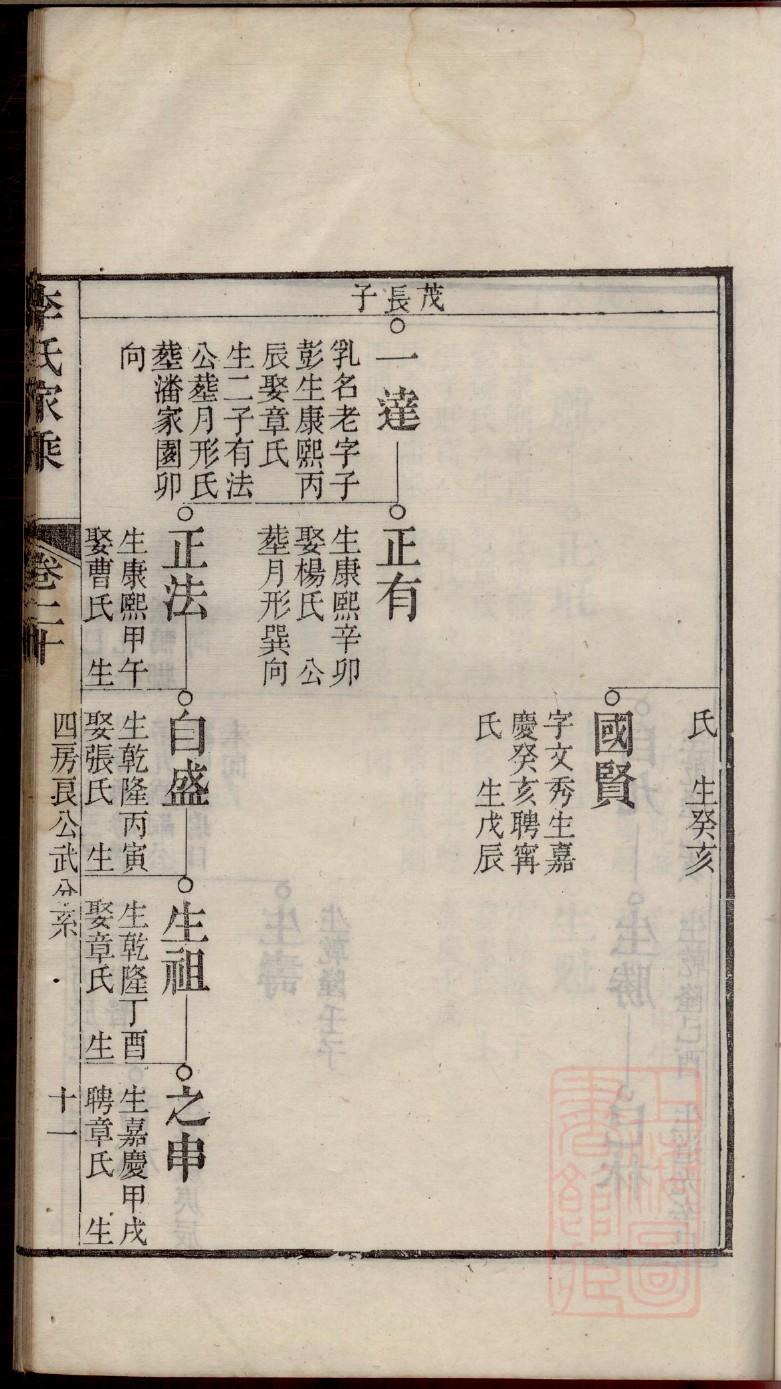 氏　生癸亥
國賢
字文秀生嘉
慶癸亥聘甯
氏　生戊辰
茂長子
一達
乳名老字子
彭生康熙丙
辰娶章氏
生二子有法
公塟月形氏
塟潘家園卯
向
正有
生康熙辛卯
娶楊氏　公
塟月形巽向
正法
生康熙甲午
娶曹氏　生
自盛
生乾隆丙寅
娶張氏　生
生祖
生乾隆丁酉
娶章氏　生
之申
生嘉慶甲戌
聘章氏　生
李氏家乘
卷二十
四房良公武分系
十一